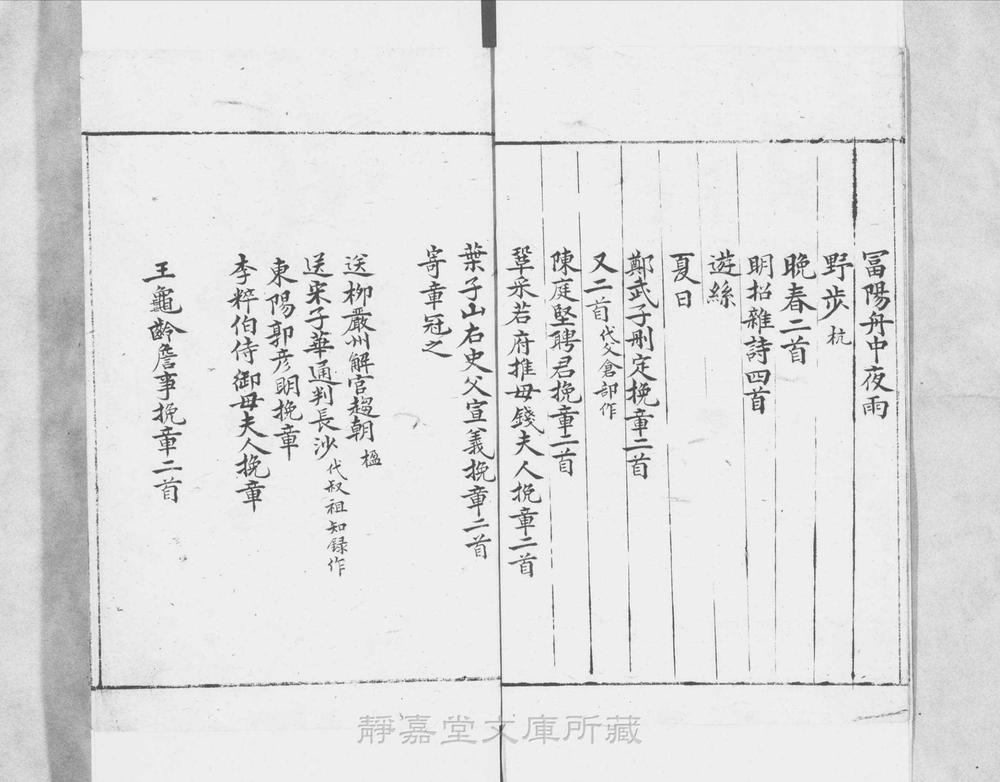 富陽舟中夜雨
野步杭
晚春二首
明招雜詩四首
遊絲
夏日
鄭武子刪定挽章二首
又二首代父倉部作
陳庭堅聘君挽章二首
鞏采若府推母錢夫人挽章二首
葉子山右史父宣義挽章二首
寄章冠之
送柳嚴州解官趨朝楹
送宋子華通判長沙代叔祖知録作
東陽郭彥明挽章
李粹伯侍御母夫人挽章
王龜齡詹事挽章二首
靜嘉堂文庫所藏